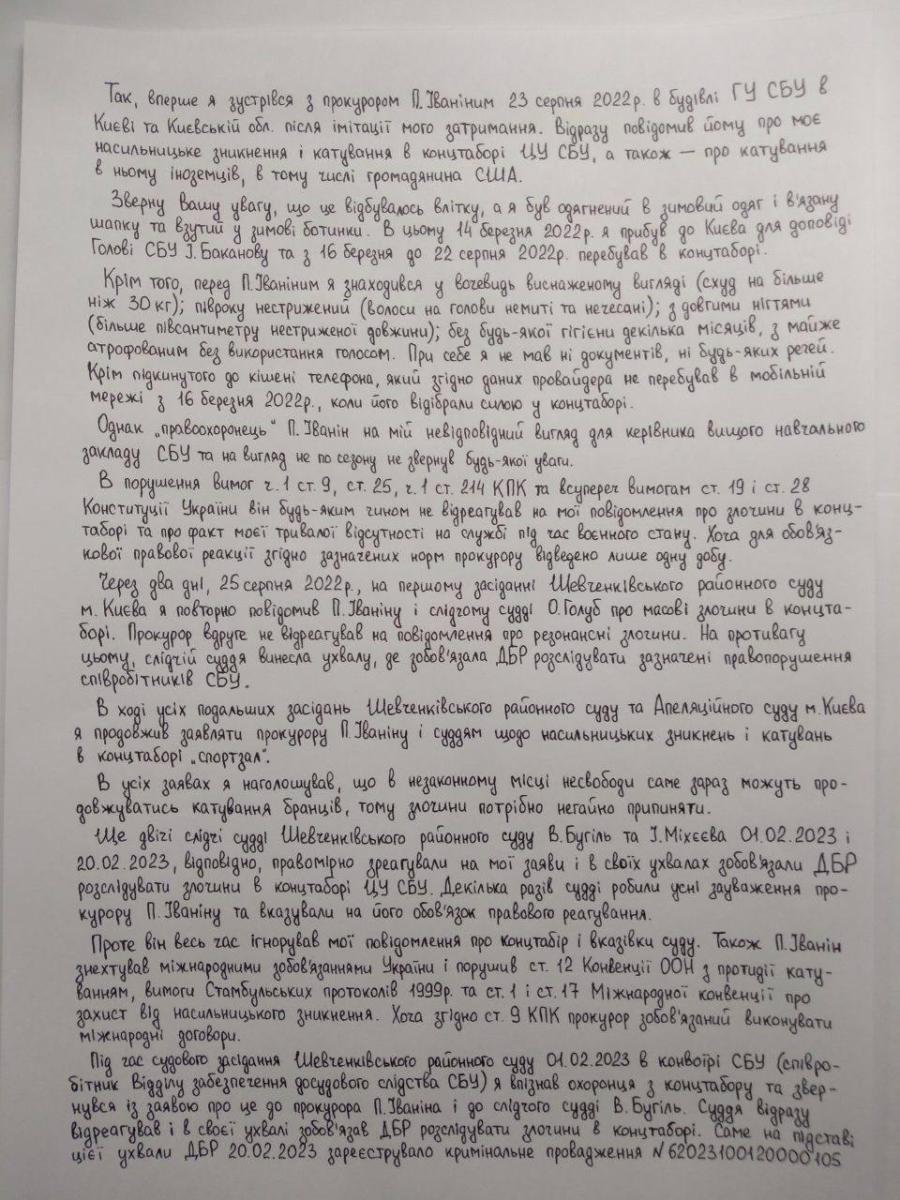 Так, вперше я зустрівся з прокурором П.Іваніним 23 серпня 2022р. в будівлі ГУ СБУ в
Києві та Києвській обл. після імітації мого затримання. Відразу повідомив йому про моє
насильницьке зникнення і катування в концтаборі ЦУ СБУ, а також — про катування
в ньому іноземців, в тому числі громадянина США.
Зверну Вашу увагу, що це відбувалось влітку, а я був одягнений в зимовий одяг і в'язану
шапку та взутий у зимові ботинки. В цьому 14 березня 2022р. я прибув до Києва для доповіді
Голові СБУ І.Баканову та з 16 березня до 22 серпня 2022р. перебував в концтаборі.
Крім того, перед П.Іваніним я знаходився у вочевидь виснаженому вигляді (схуд на більше
ніж 30 кг); півроку нестрижений (волоси на голови немиті та нечесані); з довгими нігтями
(більше півсантиметру нестриженої довжини); без будь-якої гігієни декілька місяців, з майже
атрофованим без використання голосом. При себе я не мав ні документів, ні будь-яких речей.
Крім підкинутого до кішені телефона, який згідно даних провайдера не перебував в мобільній
мережі з 16 березня 2022р., коли його відібрали силою у концтаборі.
Однак „правоохоронець" П.Іванін на мій невідповідний вигляд для керівника вищого навчального
закладу СБУ та на вигляд не по сезону не звернув будь-якої уваги.
В порушення вимог ч.1 ст.9, ст.25, ч.1 ст.214 КПК та всуперех вимогам ст. 19 і ст.28
Конституції України він будь-яким чином не відреагував на мої повідомлення про злочини в конц-
таборі та про факт моєї тривалої відсутності на службі під час воєнного стану. Хоча для обов'яз-
кової правової реакції згідно зазначених норм прокурору відведено лише одну добу.
Через два дні, 25 серпня 2022р., на першому засіданні Шевченківського районного суду
м. Києва я повторно повідомив П.Іваніну і слідчому судді О.Голуб про масові злочини в концта-
борі. Прокурор вдруге не відреагував на повідомлення про резонансні злочини. На противагу
цьому, слідчій суддя винесла ухвалу, де зобов'язала ДБР розслідувати зазначені правопорушення
співробітників СБУ.
В ході усіх подальших засідань Шевченківського районного суду та Апеляційного суду м.Києва
я продовжив заявляти прокурору П.Іваніну і суддям щодо насильницьких зникнень і катувань
в концтаборі „спортзал".
В усіх заявах я наголошував, що в незаконному місці несвободи саме зараз можуть про-
довжуватись катування бранців, тому злочини потрібно негайно припиняти.
Ще двічі слідчі судді Шевченківського районного суду В.Бугіль та І.Міхєєва 01.02.2023 і
20.02.2023, відповідно, правомірно зреагували на мої заяви і в своїх ухвалах зобов'язали ДБР
розслідувати злочини в концтаборі ЦУ СБУ. Декілька разів судді робили усні зауваження про-
курору П.Іваніну та вказували на його обов'язок правового реагування.
Проте він весь час ігнорував мої повідомлення про концтабір і вказівки суду. Також П.Іванін
знехтував міжнародними зобов'язаннями України і порушив ст. 12 Конвенції ООН з протидії кату-
ванням, вимоги Стамбульських протоколів 1999р. та ст.1 і ст.17 Міжнародної конвенції про
захист від насильницького зникнення. Хоча згідно ст.9 КПК прокурор зобов'язаний виконувати
міжнародні договори.
Під час судового засідання Шевченківського районного суду 01.02.2023 в конвоїрі СБУ (співро-
бітник Відділу забезпечення досудового слідства СБУ) я впізнав охоронця з концтабору та звер-
нувся із заявою про це до прокурора П.Іваніна і до слідчого судді В.Бугіль. Суддя відразу
відреагував і в своєї ухвалі зобов'язав ДБР розслідувати злочини в концтаборі. Саме на підставі
цієї ухвали ДБР 20.02.2023 зареєструвало кримінальне провадження №62023100120000105